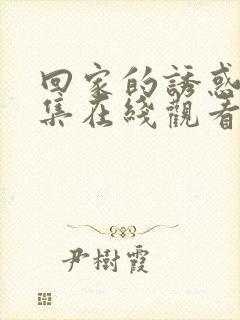 回家的誘惑
集在綫觀看
尹樹霞